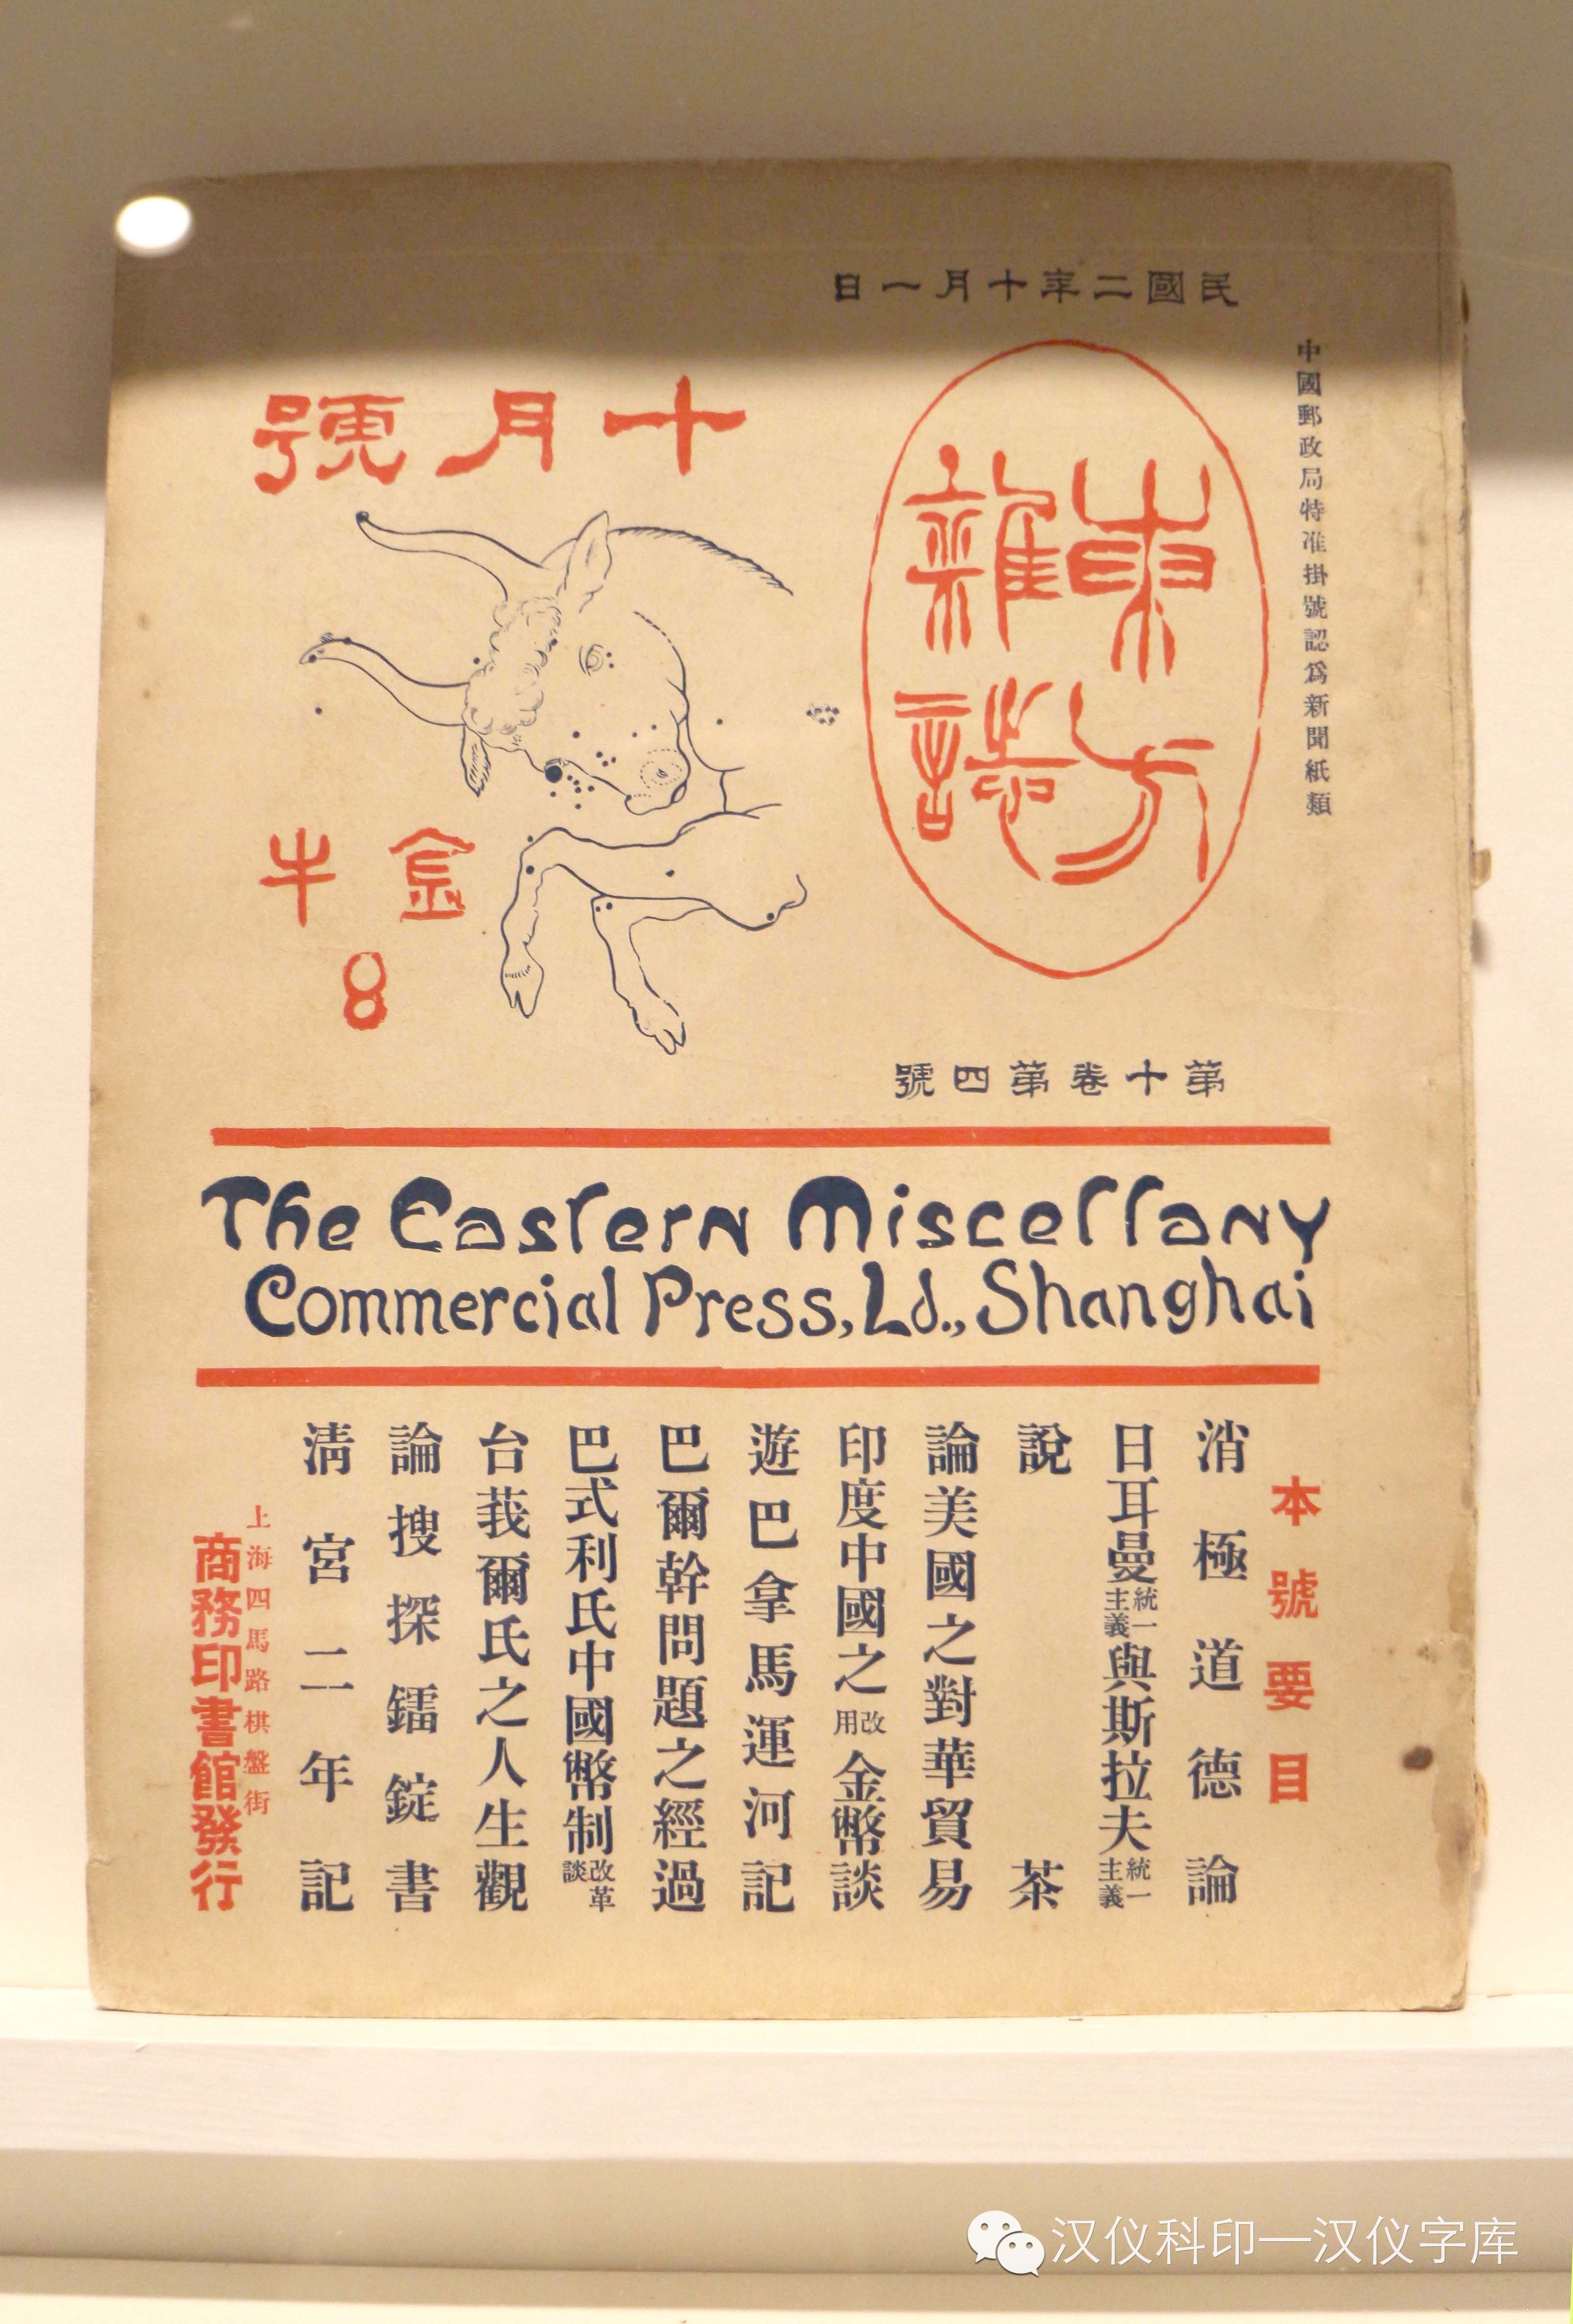 民國二年十月一日
中國郵政局特准掛號認爲新聞紙類
東方
雜誌
十月號
金牛
8
第十卷第四號
The Eastern Miscellany
Commercial Press, Ld., Shanghai
本號要目
消極道德論
日耳曼統一主義與斯拉夫統一主義
說茶
論美國之對華貿易
印度中國之改用金幣談
遊巴拿馬運河記
巴爾幹問題之經過
巴式利氏中國幣制改革談
台莪爾氏之人生觀
論搜探鐳錠書
清宮二年記
上海四馬路棋盤街
商務印書館發行
汉仪科印—汉仪字库